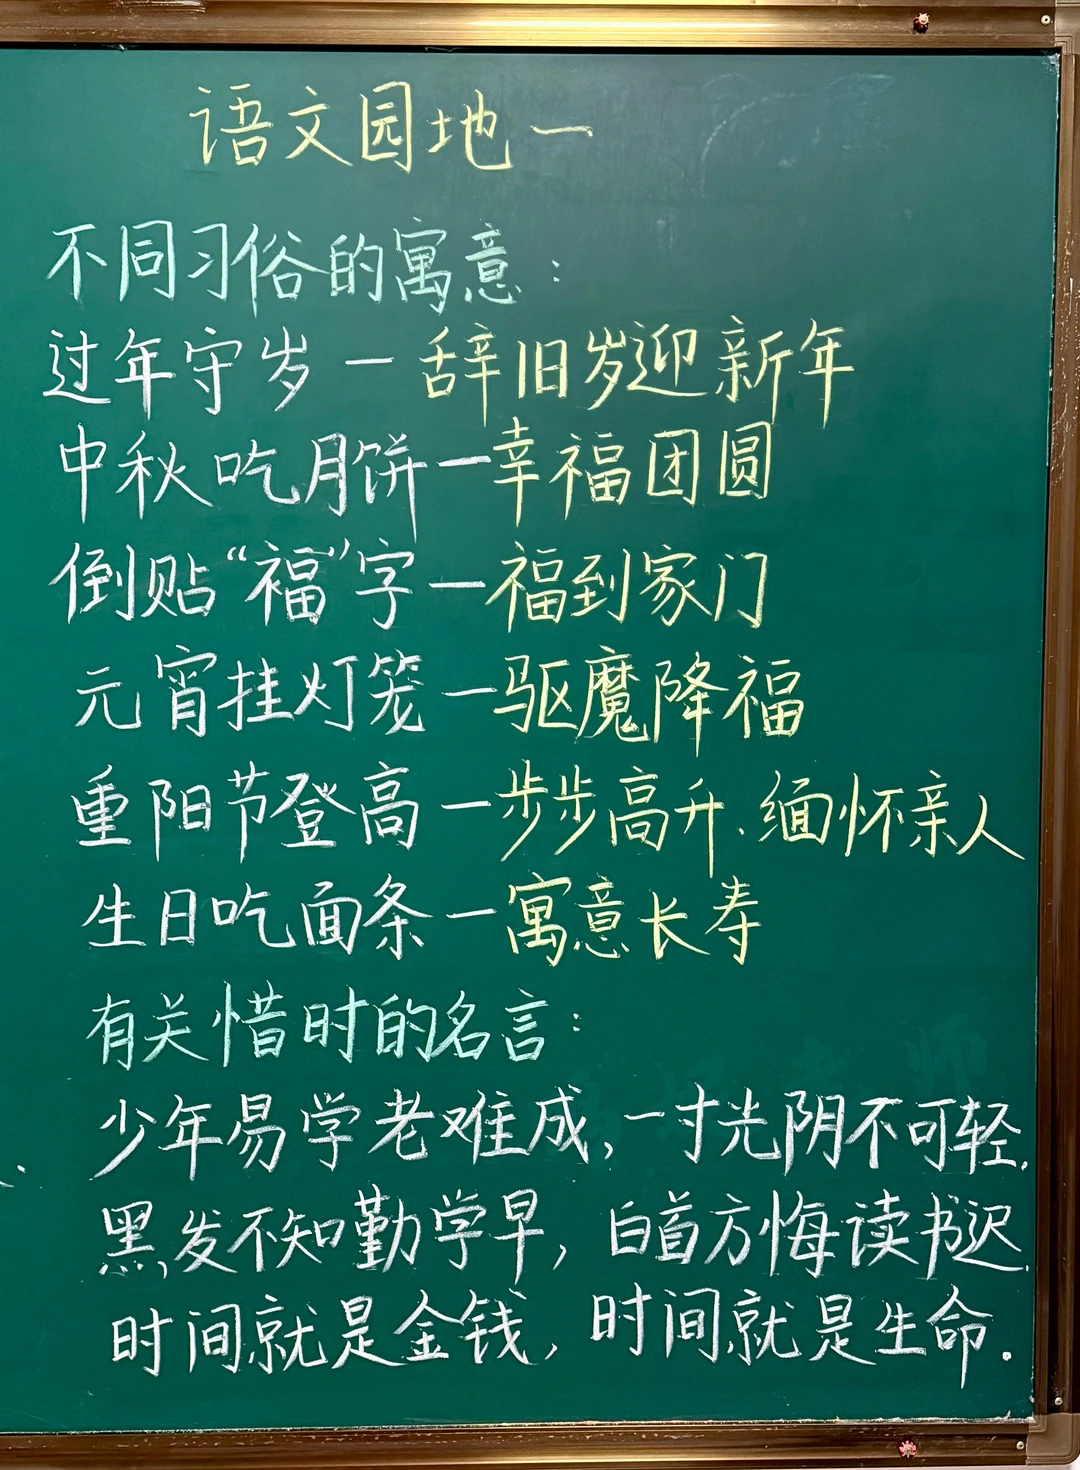 语文园地一
不同习俗的寓意：
过年守岁一辞旧岁迎新年
中秋吃月饼一幸福团圆
倒贴“福”字一福到家门
元宵挂灯笼一驱魔降福
重阳节登高一步步高升、缅怀亲人
生日吃面条一寓意长寿
有关惜时的名言：
少年易学老难成，一寸光阴不可轻.
黑发不知勤学早，白首方悔读书迟.
时间就是金钱，时间就是生命.